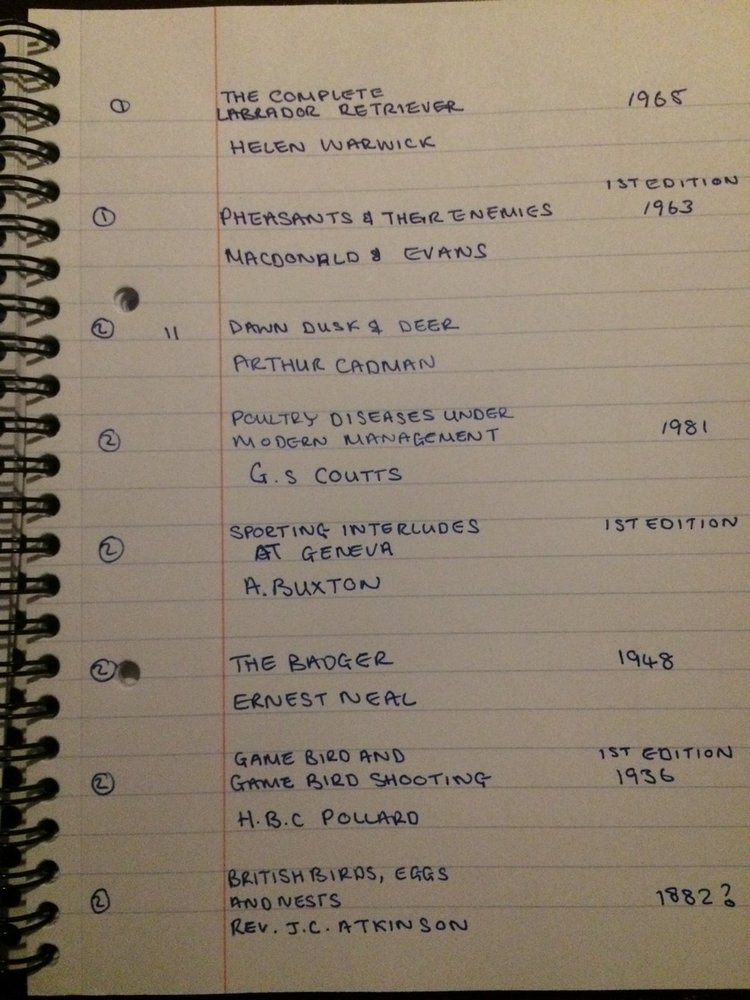 ① THE COMPLETE
LABRADOR RETRIEVER 1965
HELEN WARWICK
1ST EDITION
① PHEASANTS & THEIR ENEMIES 1963
MACDONALD & EVANS
② 11 DAWN DUSK & DEER
ARTHUR CADMAN
POULTRY DISEASES UNDER
② MODERN MANAGEMENT 1981
G.S COUTTS
SPORTING INTERLUDES 1ST EDITION
② AT GENEVA
A. BUXTON
② THE BADGER 1948
ERNEST NEAL
GAME BIRD AND 1ST EDITION
② GAME BIRD SHOOTING 1936
H.B.C POLLARD
BRITISH BIRDS, EGGS
② AND NESTS 1882?
REV. J.C. ATKINSON